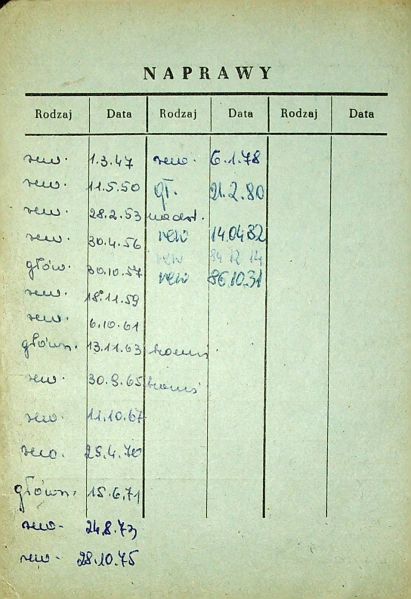 NAPRAWY
Rodzaj Data Rodzaj Data Rodzaj Data
rew. 1.3.47 rew. 6.1.78
rew. 11.5.50 gł. 21.2.80
rew. 28.2.53
rew. 30.4.56 rew 14.04.82
głów. 30.10.57 rew 84 12 14
rew. 18.11.59 rew 86.10.31
rew. 6.10.61
główn. 13.11.63
rew. 30.9.65
rew. 11.10.67
rew. 25.4.70
główn. 15.6.71
rew. 24.8.73
rew. 28.10.75